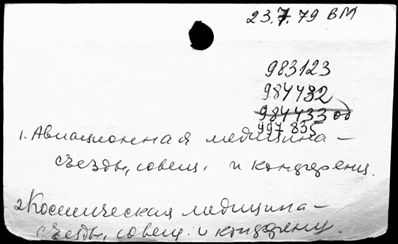 23.7.79 ВМ
983123
984432
984433 об
997835
1. Авиационная медицина –
съезды, совещ. и конференц.
2. Космическая медицина –
съезды, совещ. и конференц.